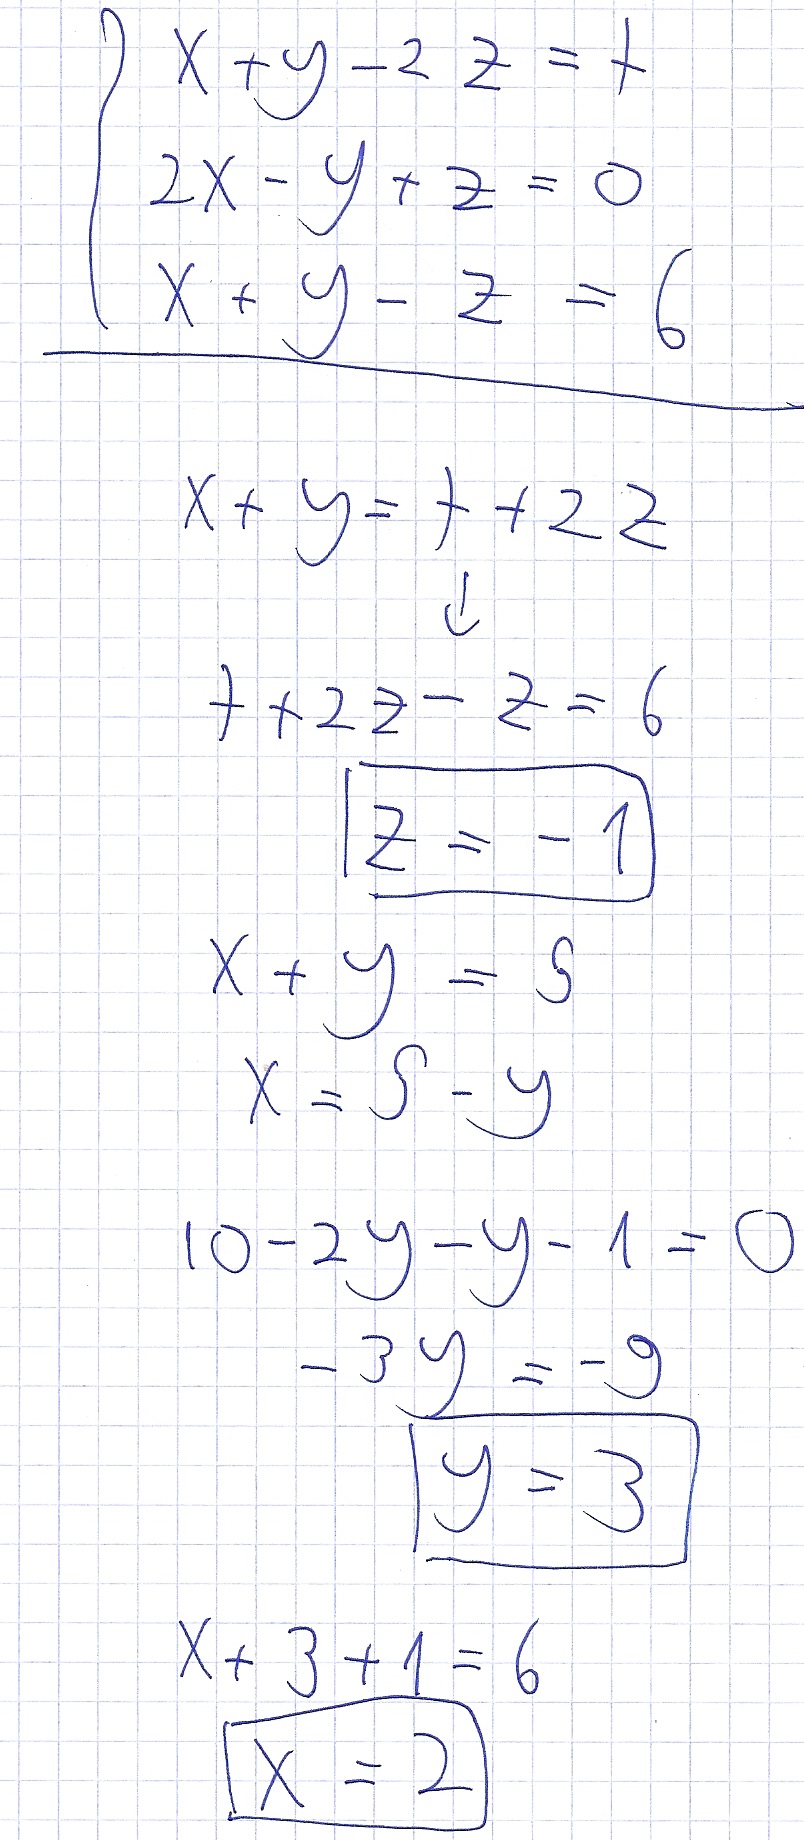 x + y - 2 z = 7
2x - y + z = 0
x + y - z = 6
x + y = 7 + 2 z
↓
7 + 2 z - z = 6
z = - 1
x + y = 5
x = 5 - y
10 - 2y - y - 1 = 0
- 3 y = - 9
y = 3
x + 3 + 1 = 6
x = 2